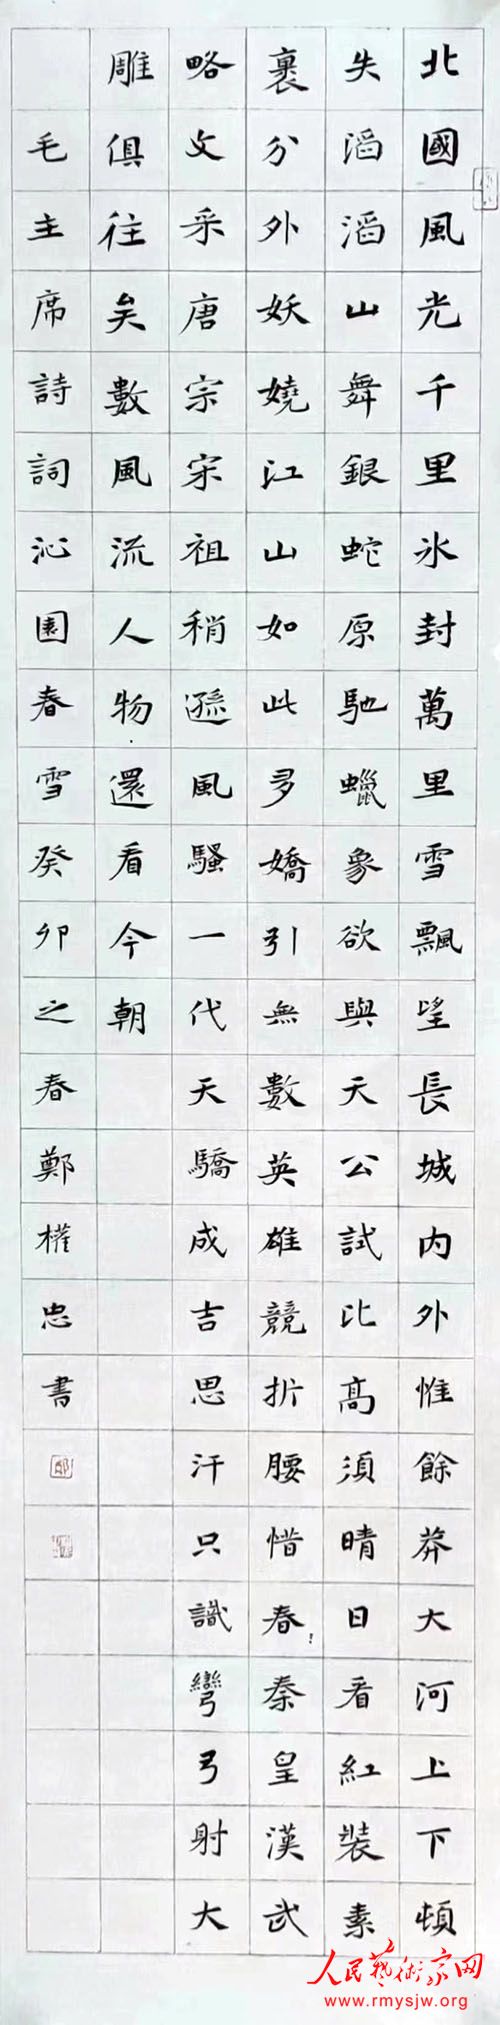 北國風光千里氷封萬里雪飄望長城内外惟餘莽大河上下頓
失滔滔山舞銀蛇原馳蠟象欲與天公試比高須晴日看紅裝素
裹分外妖嬈江山如此多嬌引無數英雄競折腰惜春秦皇漢武
略文采唐宗宋祖稍遜風騷一代天驕成吉思汗只識彎弓射大
雕俱往矣數風流人物還看今朝
毛主席詩詞沁園春雪癸卯之春鄭權忠書
人民藝術家网
www.rmysjw.org